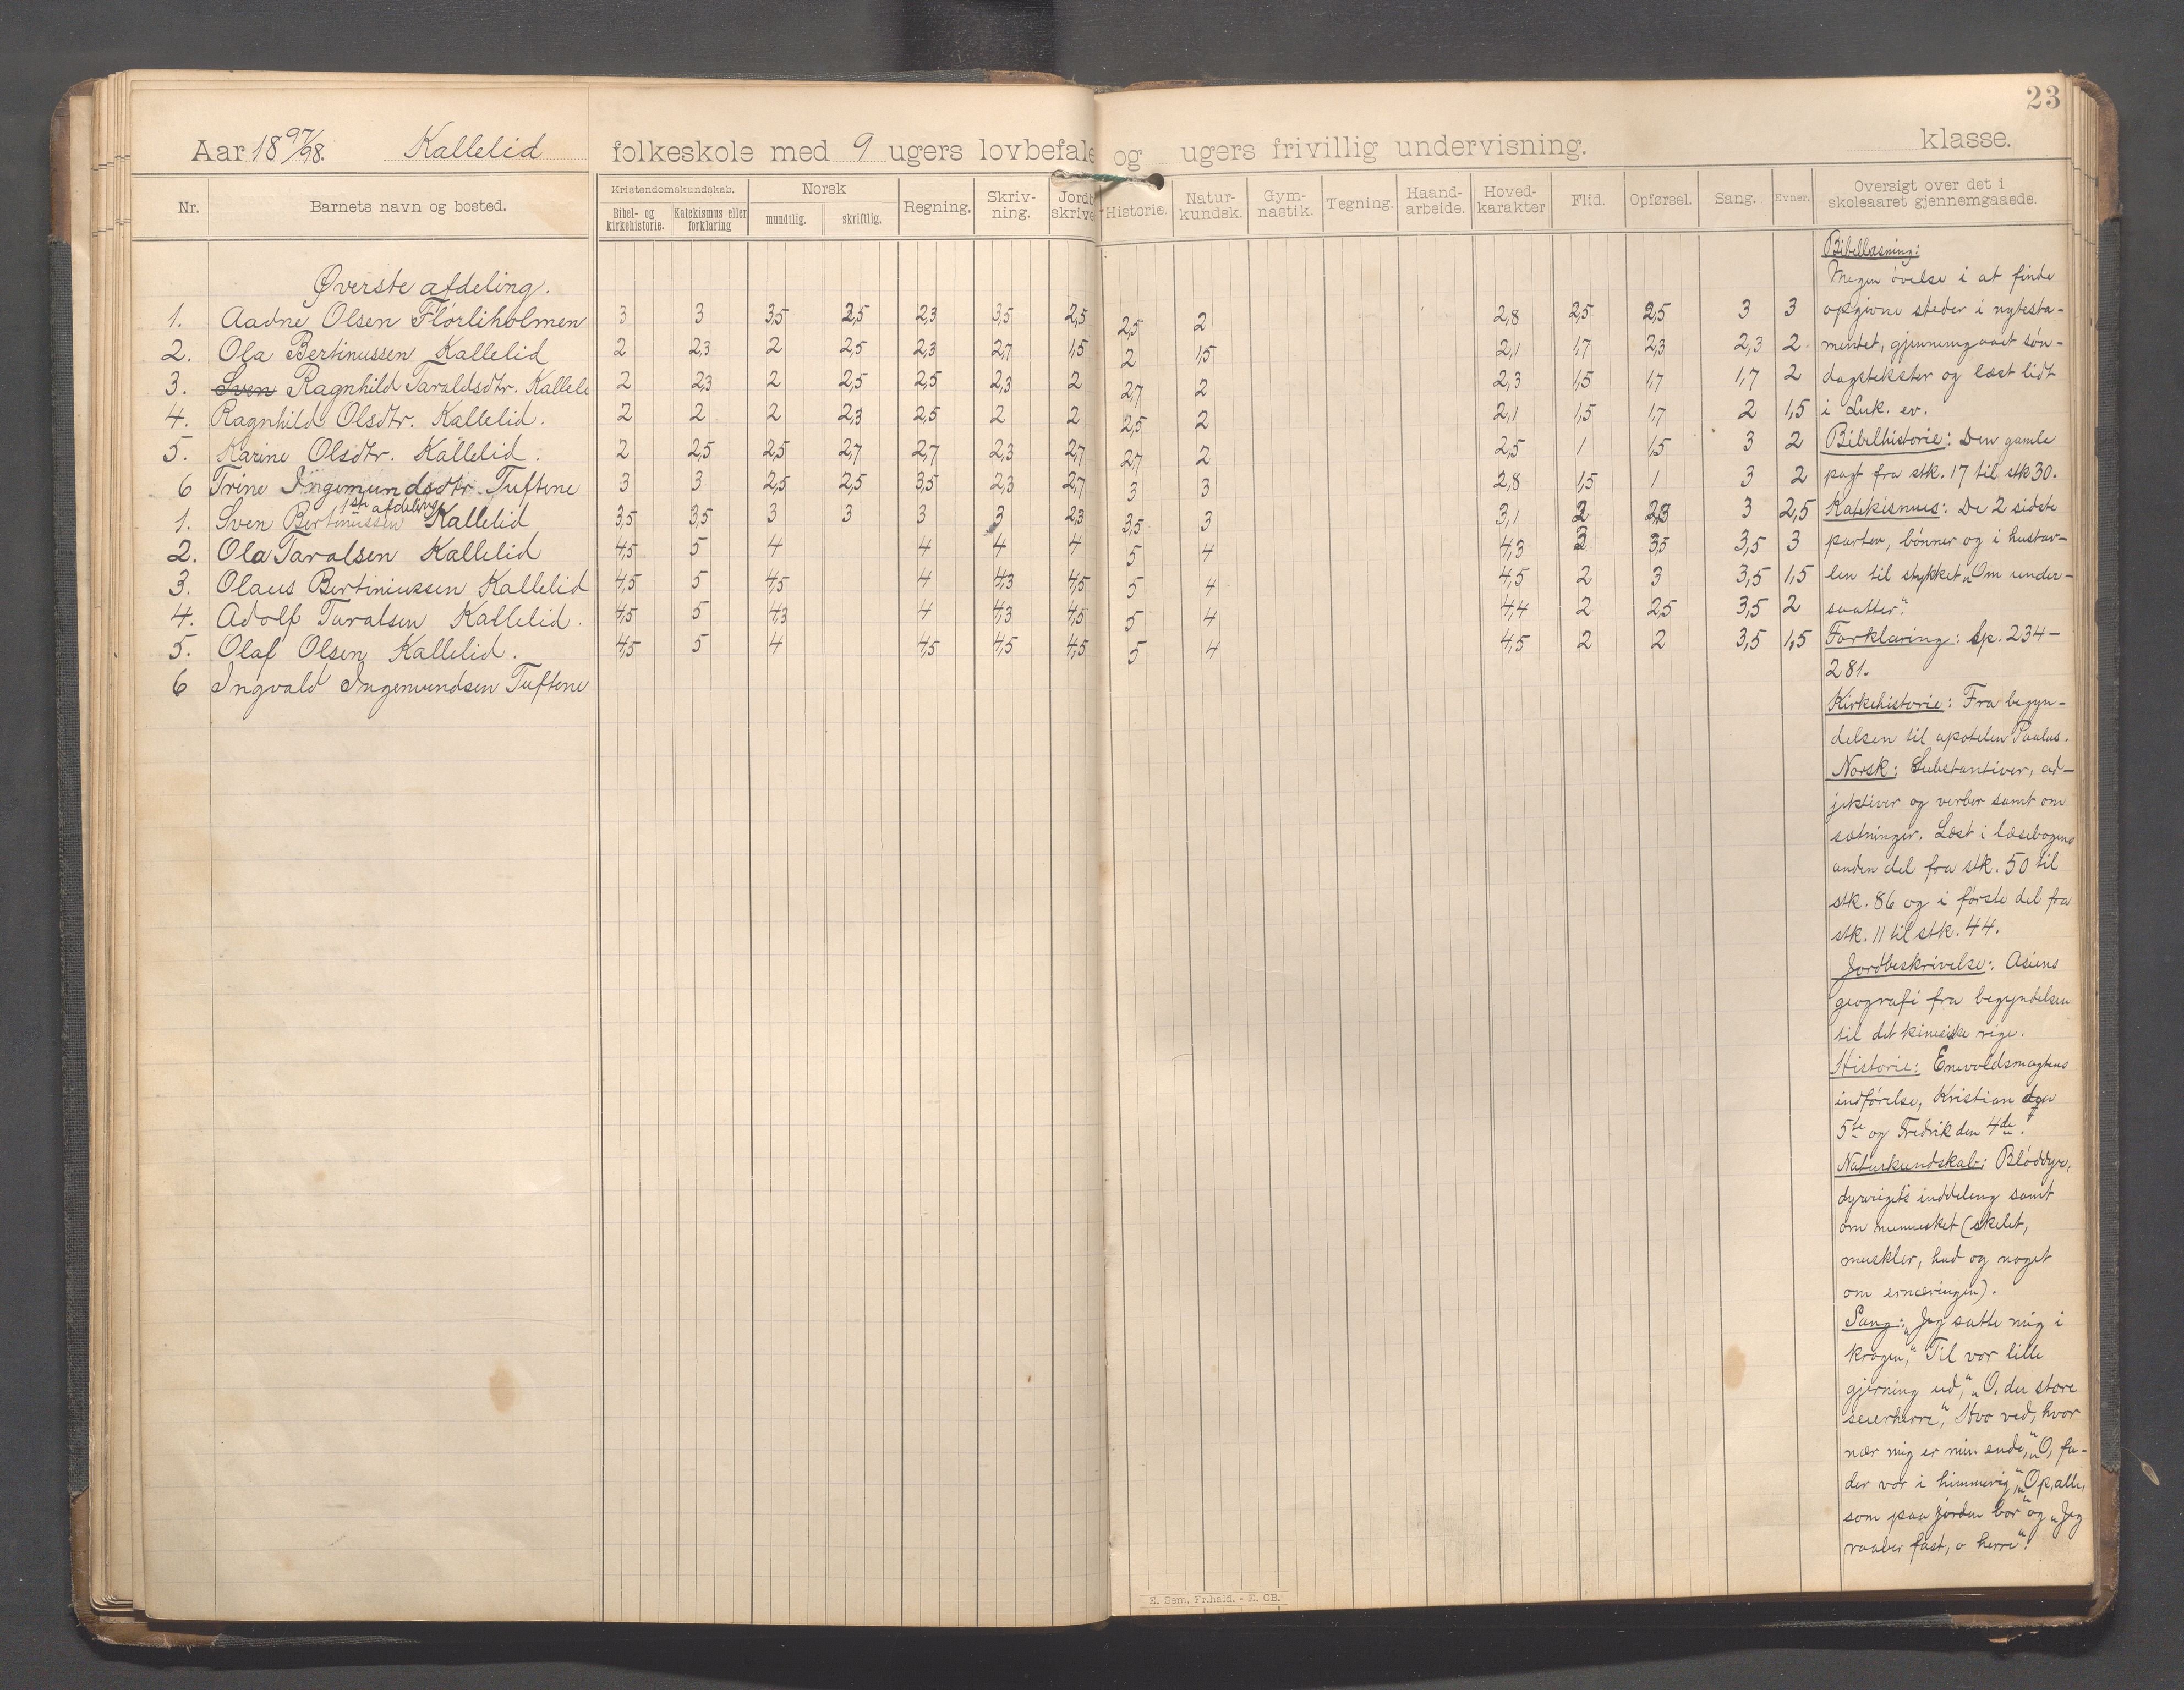 23
Aar 1897/98. Kallelid folkeskole med 9 ugers lovbefale og ugers frivillig undervisning. klasse.
Nr. Barnets navn og bosted. Kristendomskundskab. Bibel- og kirkehistorie. Katekismus eller forklaring Norsk mundtlig. skriftlig. Regning. Skriv-ning. Jordb skrive Historie. Natur-kundsk. Gym-nastik. Tegning. Haand-arbeide. Hoved-karakter Flid. Opførsel. Sang. Evner. Oversigt over det i skoleaaret gjennemgaaede.
Øverste afdeling.
1. Aadne Olsen Flörliholmen 3 3 3,5 2,5 2,3 3,5 2,5 2,5 2 2,8 2,5 2,5 3 3
2. Ola Bertinussen Kallelid 2 2,3 2 2,5 2,3 2,7 1,5 2 1,5 2,1 1,7 2,3 2,3 2
3. Sven Ragnhild Taraldsdtr. Kallele 2 2,3 2 2,5 2,5 2,3 2 2,7 2 2,3 1,5 1,7 1,7 2
4. Ragnhild Olsdtr. Kallelid. 2 2 2 2,3 2,5 2 2 2,5 2 2,1 1,5 1,7 2 1,5
5. Karine Olsdtr. Kallelid. 2 2,5 2,5 2,7 2,7 2,3 2,7 2,7 2 2,5 1 1,5 3 2
6 Trine Ingemundsdtr. Tuftene 3 3 2,5 2,5 3,5 2,3 2,7 3 3 2,8 1,5 1 3 2
1ste afdeling
1. Sven Bertinussen Kallelid 3,5 3,5 3 3 3 3 2,3 3,5 3 3,1 2 2,3 3 2,5
2. Ola Taralsen Kallelid 4,5 5 4 4 4 4 5 4 4,3 2 3,5 3,5 3
3. Olaus Bertiniussen Kallelid 4,5 5 4,5 4 4,3 4,5 5 4 4,5 2 3 3,5 1,5
4. Adolf Taralsen Kallelid. 4,5 5 4,3 4 4,3 4,5 5 4 4,4 2 2,5 3,5 2
5. Olaf Olsen Kallelid. 4,5 5 4 4,5 4,5 4,5 5 4 4,5 2 2 3,5 1,5
6 Ingvald Ingemundsen Tuftene
Bibellæsning:
Megen övelse i at finde
opgivne steder i nytesta-
mentet, gjennemgaaet søn-
dagstekster og læst lidt
i Luk. ev.
Bibelhistorie: Den gamle
pagt fra stk. 17 til stk 30.
Katekismus: De 2 sidste
parter, bönner og i hustav-
len til stykket „Om under-
saatter“.
Forklaring: Sp. 234-
281.
Kirkehistorie: Fra begyn-
delsen til apostelen Paulus.
Norsk: Substantiver, ad-
jektiver og verber samt om
sætninger. Læst i læsebogens
anden del fra stk. 50 til
stk. 86 og i förste del fra
stk. 11 til stk. 44.
Jordbeskrivelse: Asiens
geografi fra begyndelsen
til det kinesiske rige.
Historie: Enevoldsmagtens
indförelse, Kristian den
5te og Fredrik den 4de.
Naturkundskab: Bløddyr,
dyrerigets inddeling samt
om mennesket (skelet,
muskler, hud og noget
om ernæringen).
Sang: „Jeg satte mig i
kragen“, Til vor lille
gjerning ud“, „O, du store
seierherre“, Hvo ved, hvor
nær mig er min ende“, „O, fa-
der vor i himmerig“, „Op, alle,
som paa jorden bor“ og „Jeg
raaber fast, o herre“.
E. Sem, Fr.hald. - E. CB.